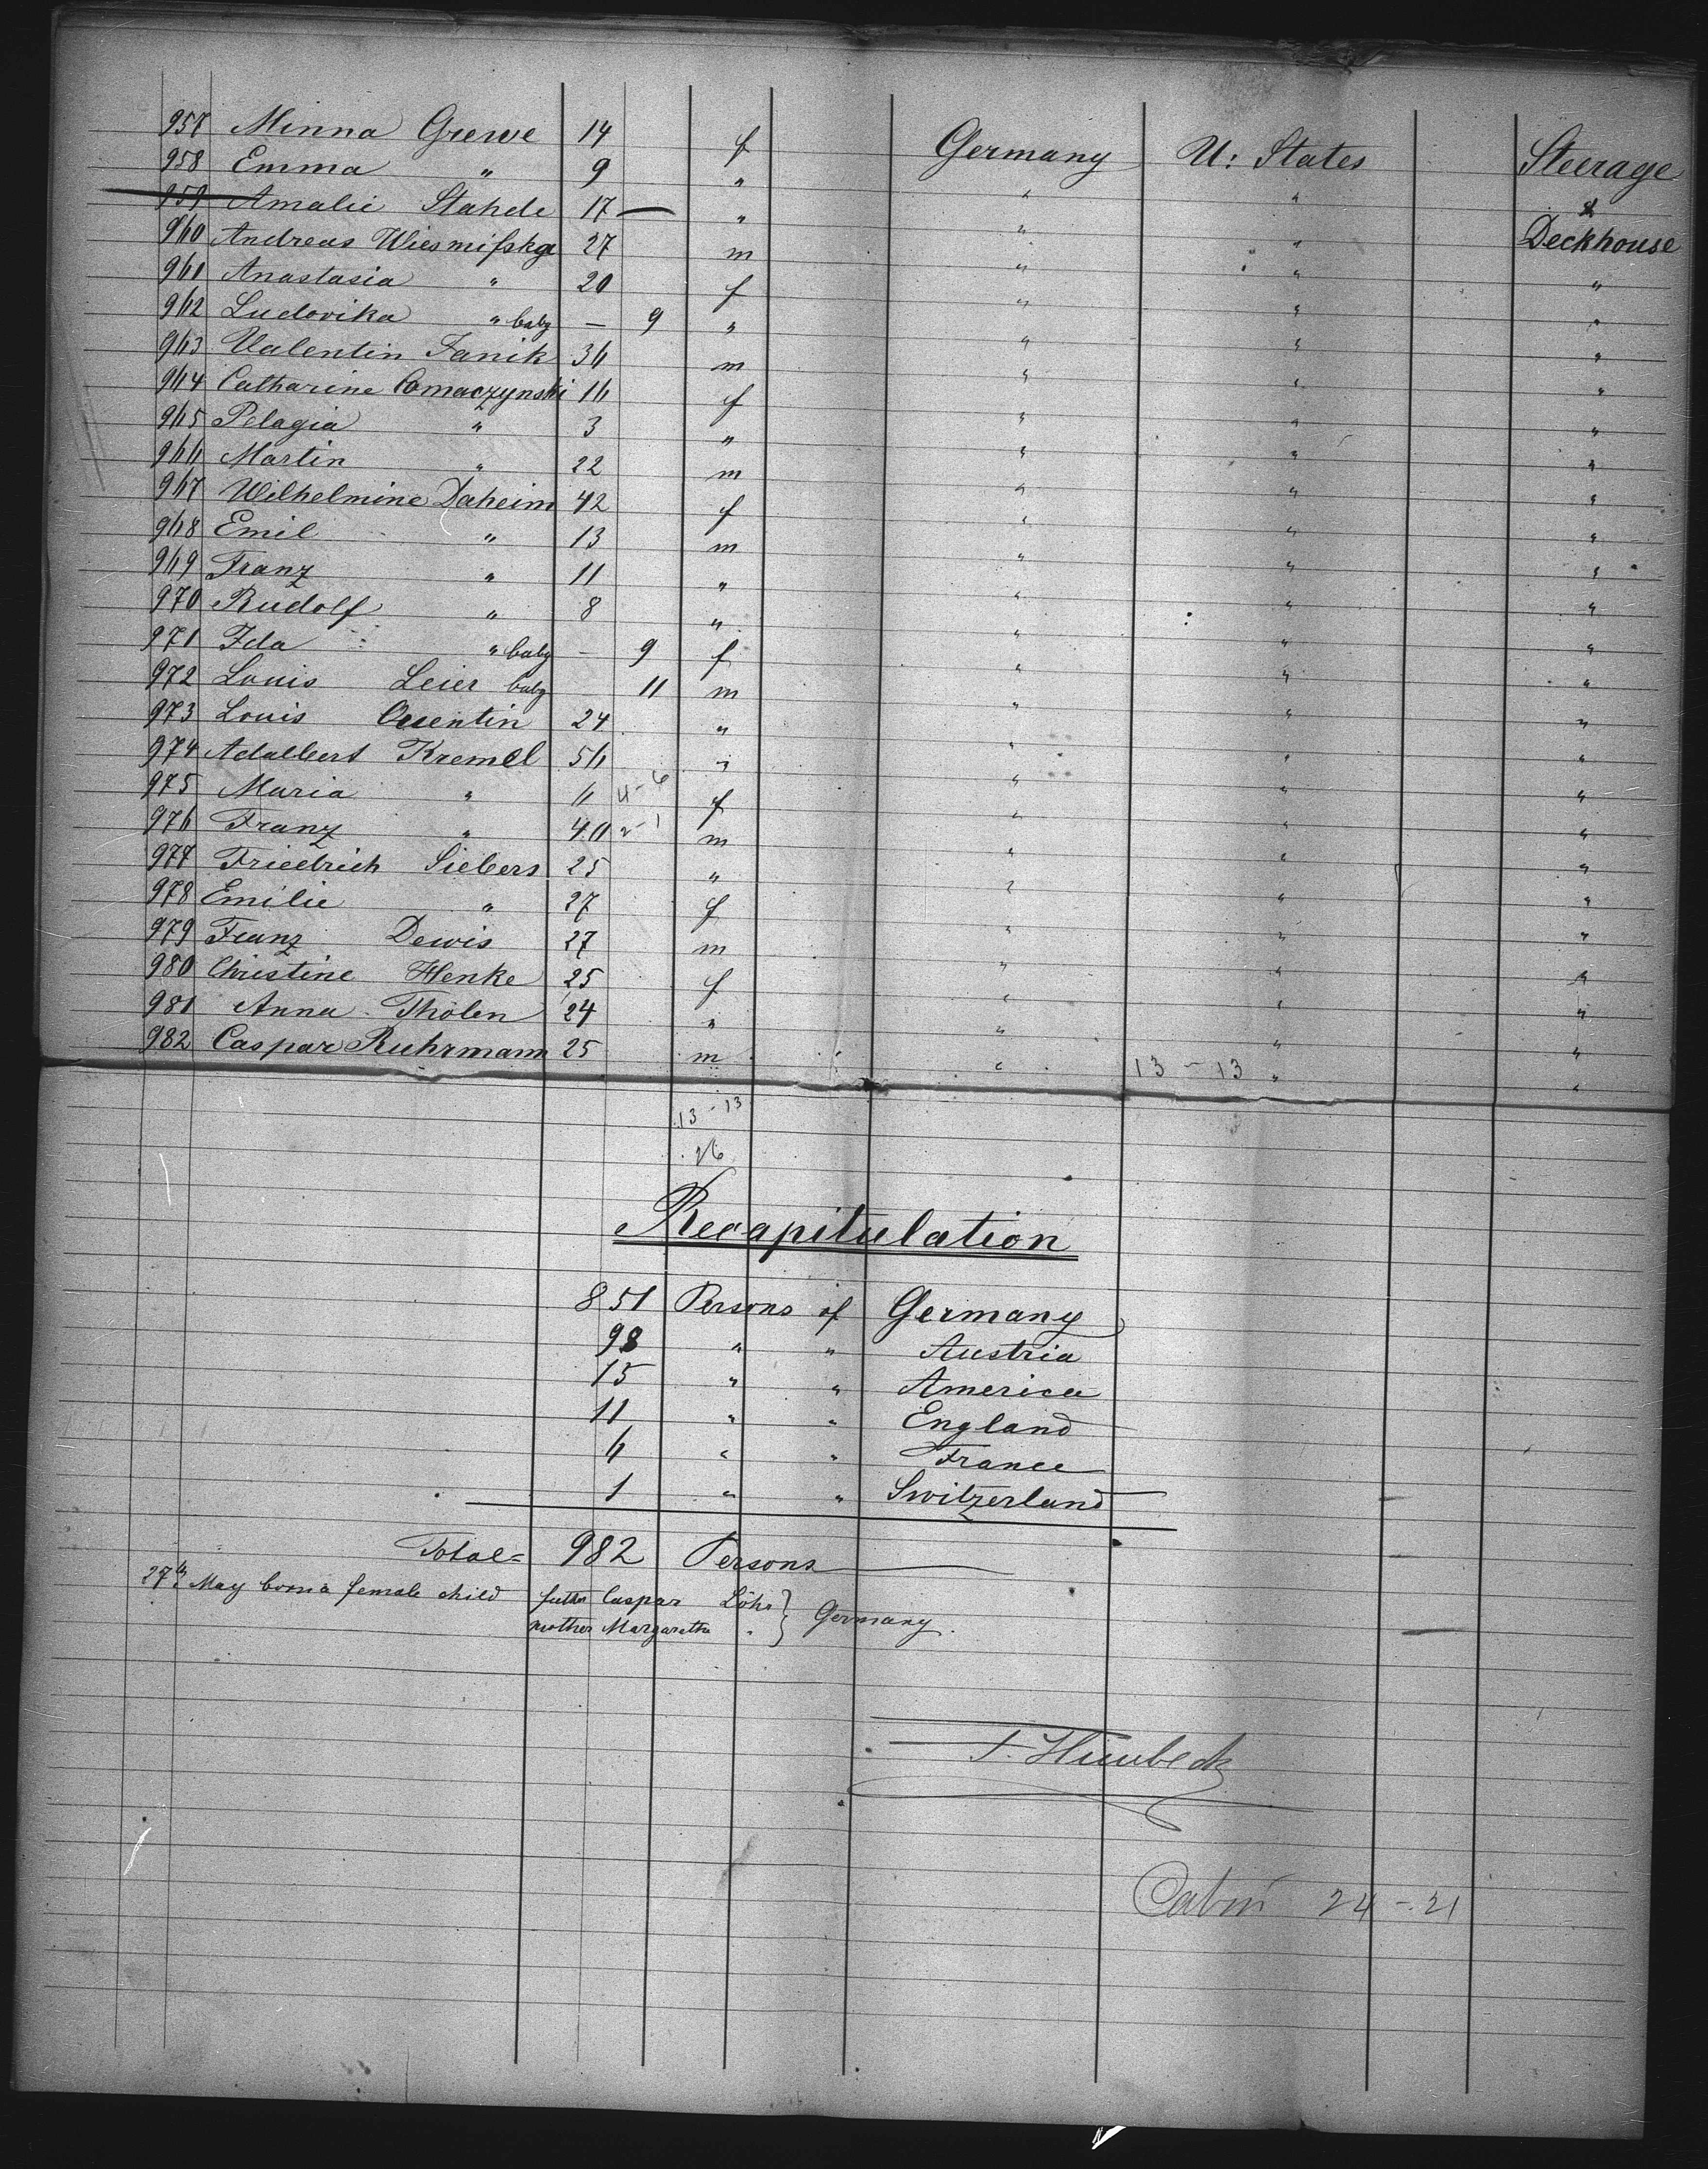 957 Minna Grewe 14 f Germany U: States Steerage
958 Emma " 9 " " " &
959 Amalie Stahde 17 — " " " Deckhouse
960 Andreas 27 m " " "
961 Anastasia " 20 f " " "
962 Ludovika " baby — 9 " " " "
963 Valentin Janik 36 m " " "
964 Catharine 16 f " " "
965 Pelagia " 3 " " " "
966 Martin " 22 m " " "
967 Wilhelmine Daheim 42 f " " "
968 Emil " 13 m " " "
969 Franz " 11 " " " "
970 Rudolf " 8 " " " "
971 Ida " baby — 9 f " " "
972 Louis Leier baby — 11 m " " "
973 Louis Quentin 24 " " " "
974 Adalbert Kreml 56 " " " "
975 Maria " 6 4-6 f " " "
976 Franz " 40 2-1 m " " "
977 Friedrich Siebers 25 " " " "
978 Emilie " 27 f " " "
979 Franz Dewis 27 m " " "
980 Christine Henke 25 f " " "
981 Anna Tholen 24 " " " "
982 Caspar Ruhrmann 25 m " " "
13 - 13
13 - 13
26
Recapitulation
851 Persons of Germany
98 " " Austria
15 " " America
11 " " England
6 " " France
1 " " Switzerland
Total = 982 Persons
27th May born a female child father Caspar Löhr } Germany.
mother Margaretha "
Cabin 24 - 21